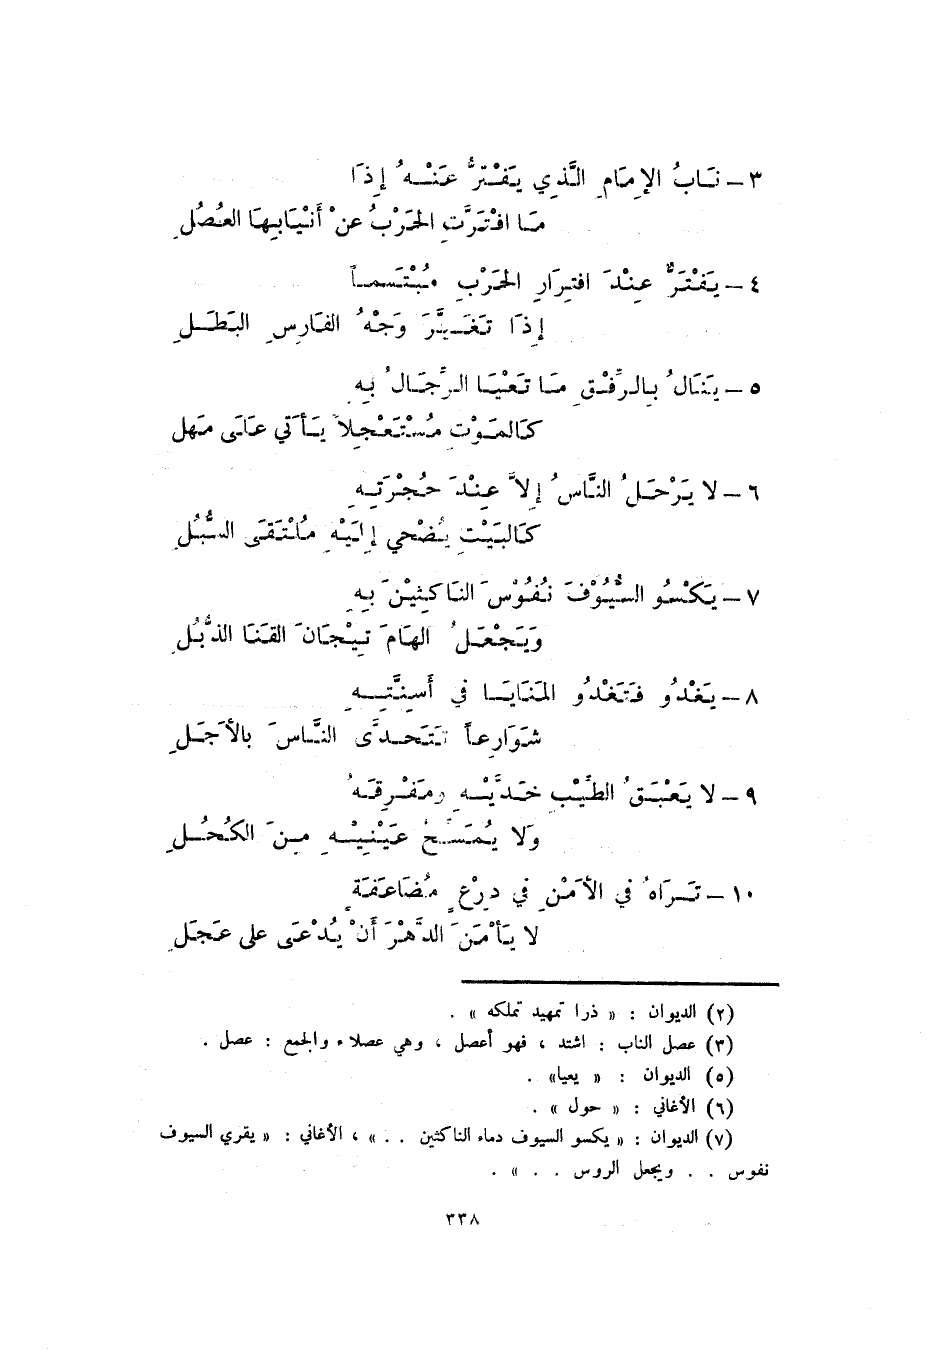 ٣ – نَابُ الإِمَامِ الَّذِي يَفْتَرُّ عَنْهُ إِذَا
مَا افْتَرَّتِ الحَرْبُ عنْ أَنْيَابِهَا العُصُلِ
٤ – يَفْتَرُّ عِنْدَ افتِرَارِ الحَرْبِ مُبْتَسماً
إِذَا تَغَيَّرَ وَجْهُ الفَارِسِ البَطَلِ
٥ – يَنَالُ بِالرِّفْقِ مَا تَعْيَا الرِّجَالُ بِهِ
كَالمَوْتِ مُسْتَعْجِلاً يَأْتي عَلَى مَهل
٦ – لا يَرْحَلُ النَّاسُ إِلاَّ عِنْدَ حُجْرَتِهِ
كَالبَيْتِ يُضْحي إِلَيْهِ مُلْتَقَى السُّبُلِ
٧ – يَكْسُو السُّيُوْفَ نُفُوْسَ النَاكِثِيْنَ بِهِ
وَيَجْعَلُ الهَامَ تِيْجَانَ القَنَا الذُّبُلِ
٨ – يَغْدُو فَتَغْدُو المَنَايَا في أَسِنَّتِهِ
شَوَارِعاً تَتَحدَّى النَّاسَ بالأَجَلِ
٩ – لا يَعْبَقُ الطِّيْبِ خَدَّيْهِ ومَفْرِقَهُ
وَلا يُمَسِّحُ عَيْنَيْهِ مِنَ الكُحُلِ
١٠ – تَرَاهُ في الأَمْنِ في دِرْعٍ مُضَاعَفَةٍ
لا يَأْمَنَ الدَّهْرَ أَنْ يُدْعَى على عَجَلِ
(٢) الديوان : « ذرا تمهيد تملكه » .
(٣) عصل الناب : اشتد ، فهو أعصل ، وهي عصلاء والجمع : عصل .
(٥) الديوان : « يعيا» .
(٦) الأغاني : « حول » .
(٧) الديوان : « يكسو السيوف دماء الناكثين . . » ، الأغاني : « يقري السيوف
نفوس . . ويجعل الروس . . » .
٣٣٨